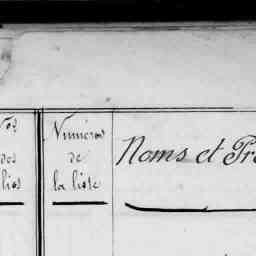 Nos
des
lios
Numéros
de
la liste
Noms et Pré